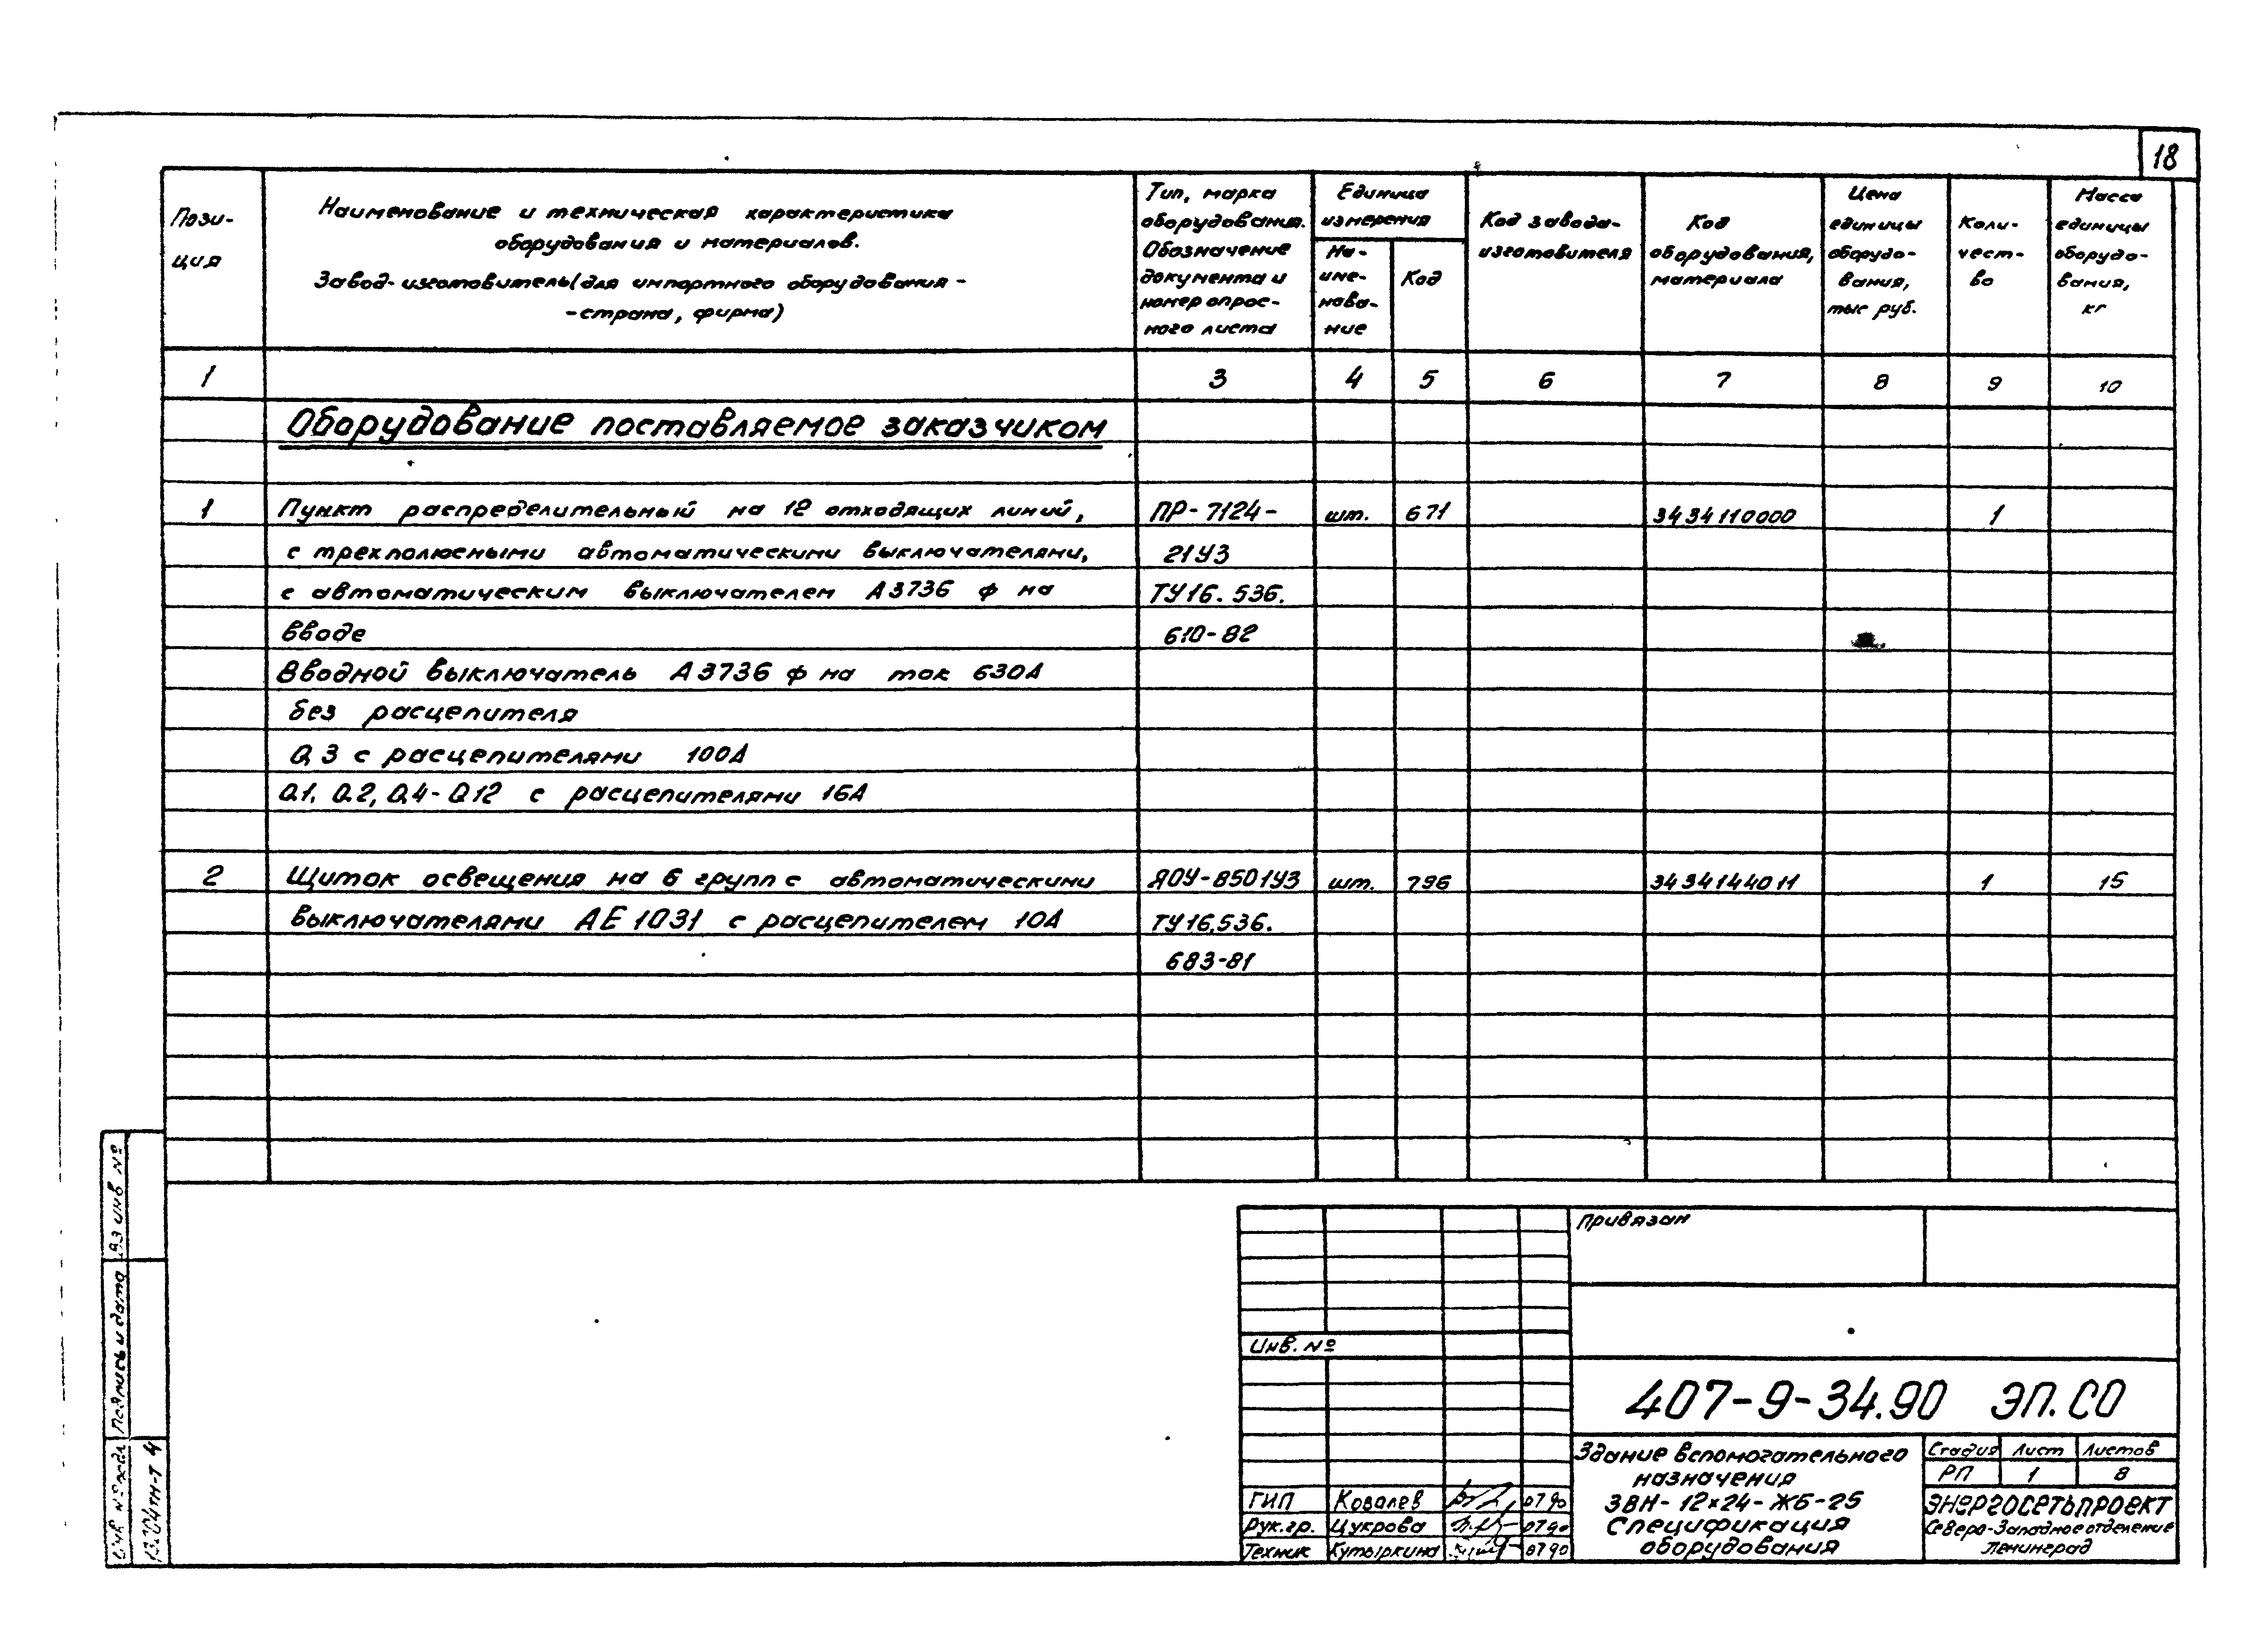 18
Пози-
ция
Наименование и техническая характеристика
оборудования и материалов.
Завод-изготовитель (для импортного оборудования -
- страна, фирма)
Тип, марка
оборудования.
Обозначение
документа и
номер опрос-
ного листа
Единица
измерения
На-
име-
нова-
ние
Код
Код завода-
изготовителя
Код
оборудования,
материала
Цена
единицы
оборудо-
вания,
тыс руб.
Коли-
чест-
во
Масса
единицы
оборудо-
вания,
кг
1 3 4 5 6 7 8 9 10
Оборудование поставляемое заказчиком
1 Пункт распределительный на 12 отходящих линий, ПР-7124- шт. 671 3434110000 1
с трехполюсными автоматическими выключателями, 21У3
с автоматическим выключателем А3736 ф на ТУ16.536.
вводе 610-82
Вводной выключатель А3736 ф на ток 630А
без расцепителя
Q3 с расцепителями 100А
Q1, Q2, Q4-Q12 с расцепителями 16А
2 Щиток освещения на 6 групп с автоматическими ЯОУ-8501У3 шт. 796 3434144011 1 15
выключателями АЕ1031 с расцепителем 10А ТУ16.536.
683-81
Привязан
Инв. №
407-9-34.90 ЭП.СО
Здание вспомогательного
назначения
ЗВН-12х24-ЖБ-25
Спецификация
оборудования
Стадия Лист Листов
РП 1 8
ЭНЕРГОСЕТЬПРОЕКТ
Северо-Западное отделение
Ленинград
ГИП Ковалев 07 90
Рук.гр. Цукрова 07 90
Техник Кутыркина 07 90
Вз инв №
Подпись и дата
Инв № подл